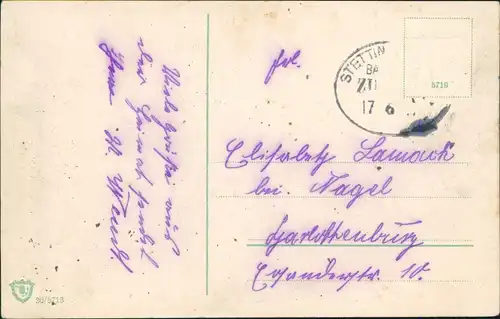 Viele Grüße aus
der Heimat sendet
Ihnen W. Wendt.
Frl.
STETTIN
BA
ZU
17 6
5719
Elisabeth Lamack
bei Nagel
Charlottenburg
Eosanderstr. 10.